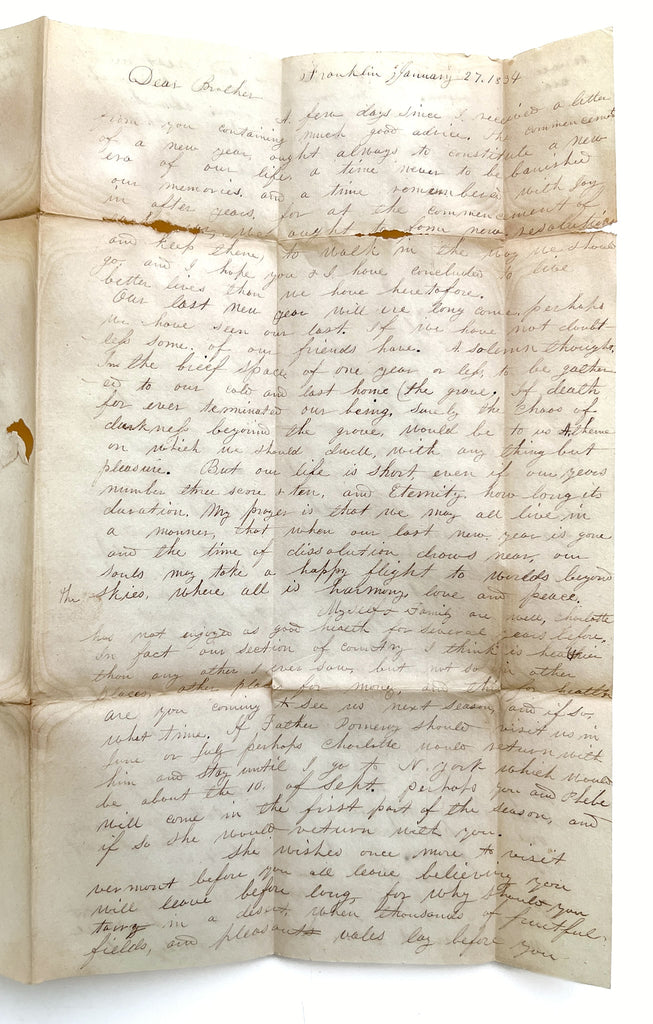 Franklin January 27. 1834
Dear Brother
A few days since I received a letter
from you containing much good advice. The commencement
of a new year, ought always to constitute a new
era of our lifes, a time never to be banished
our memories. and a time remembered with joy
in after years. for at the commencement of
we ought to form new resolutions
and keep them, to walk in the way we should
go, and I hope you & I have concluded to live
better lives than we have heretofore.
Our last new year will ere long come, perhaps
we have seen our last. If we have not doubt
less some of our friends have. A solemn thought.
In the brief space of one year or less, to be gather
ed to our cold and last home (the grave. If death
for ever terminated our being, surely the chaos of
darkness beyond the grave, would be to us a theme
on which we should dwell, with any thing but
pleasure. But our life is short, even if our years
number three score & ten, and Eternity, how long its
duration. My prayer is that we may all live in
a manner, that when our last new year is gone
and the time of dissolution draws near, our
souls may take a happy flight to worlds beyond
the skies, where all is harmony, love and peace.
Myself & Family are well, Charlotte
has not enjoyed as good health for several years before.
In fact our section of country I think is healthier
than any other I ever saw, but not so in other
places, other places for money, and this for health
are you coming to see us next season, and if so,
what time. If Father Pomeroy should visit us in
June or July perhaps Charlotte would return with
him and stay until I go to N. York which would
be about the 10. of Sept. perhaps you and Phebe
will come in the first part of the season, and
if so she would return with you.
She wishes once more to visit
vermont before you all leave believing you
will leave before long, for why should you
in a desert, when thousands of fruitful
fields, and pleasant vales lay before you